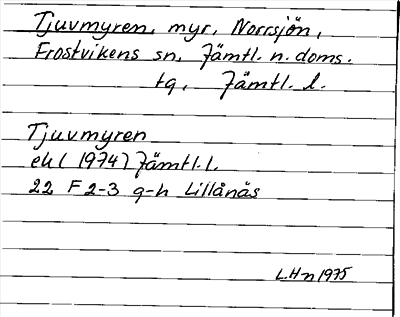 Tjuvmyren, myr, Norrsjön,
Frostvikens sn, Jämtl. n. doms.
tg, Jämtl. l.
Tjuvmyren
ek (1974) Jämtl. l.
22 F 2-3 g-h Lillånäs
L.Hn 1975